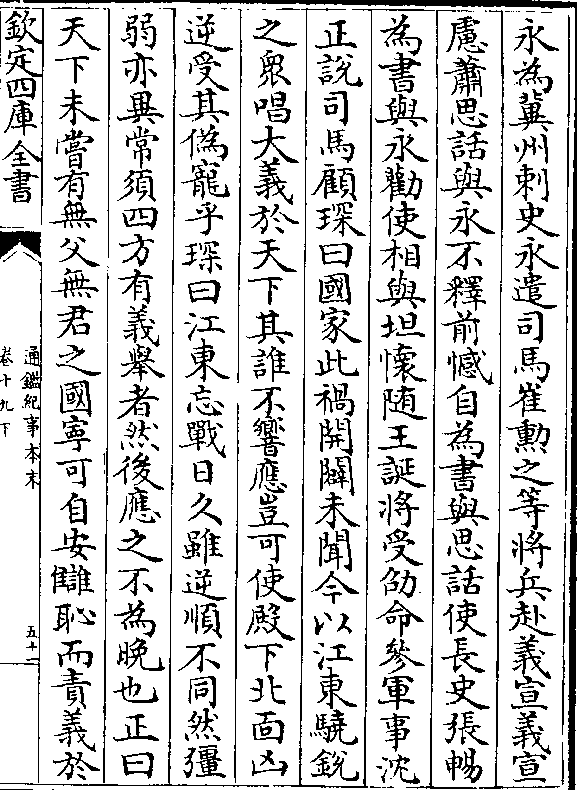 永為冀州刺史永遣司馬崔勲之等將兵赴義宣義宣
慮蕭思話與永不釋前憾自為書與思話使長史張暢
為書與永勸使相與坦懷随王誕將受劭命參軍事沈
正說司馬顧琛曰國家此禍開闢未聞今以江東驍鋭
之衆唱大義於天下其誰不響應豈可使殿下北面凶
逆受其偽寵乎琛曰江東忘戰日久雖逆順不同然彊
弱亦異常須四方有義舉者然後應之不為晩也正曰
天下未嘗有無父無君之國寧可自安讎恥而責義於
欽定四庫全書
通鑑紀事本末
卷十九下
五十二